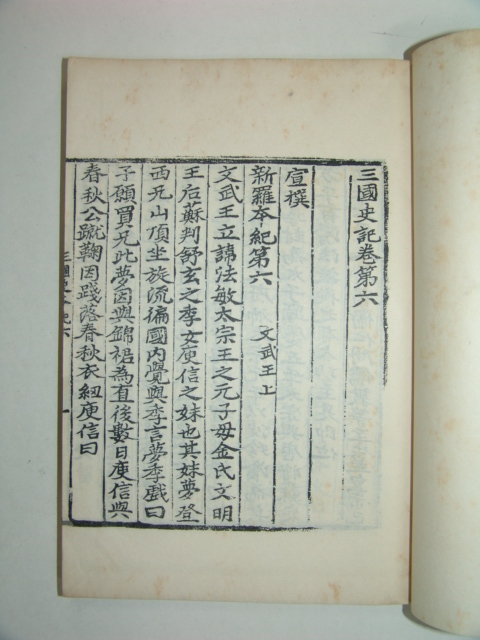 三國史記卷第六
宣撰
新羅本紀第六 文武王上
文武王立諱法敏太宗王之元子母金氏文明
王后蘇判舒玄之季女庾信之妹也其姊夢登
西兄山頂坐旋流徧國內覺與季言夢季戱曰
子願買兄此夢因與錦裙為直後數日庾信與
春秋公蹴鞠因踐落春秋衣紐庾信曰